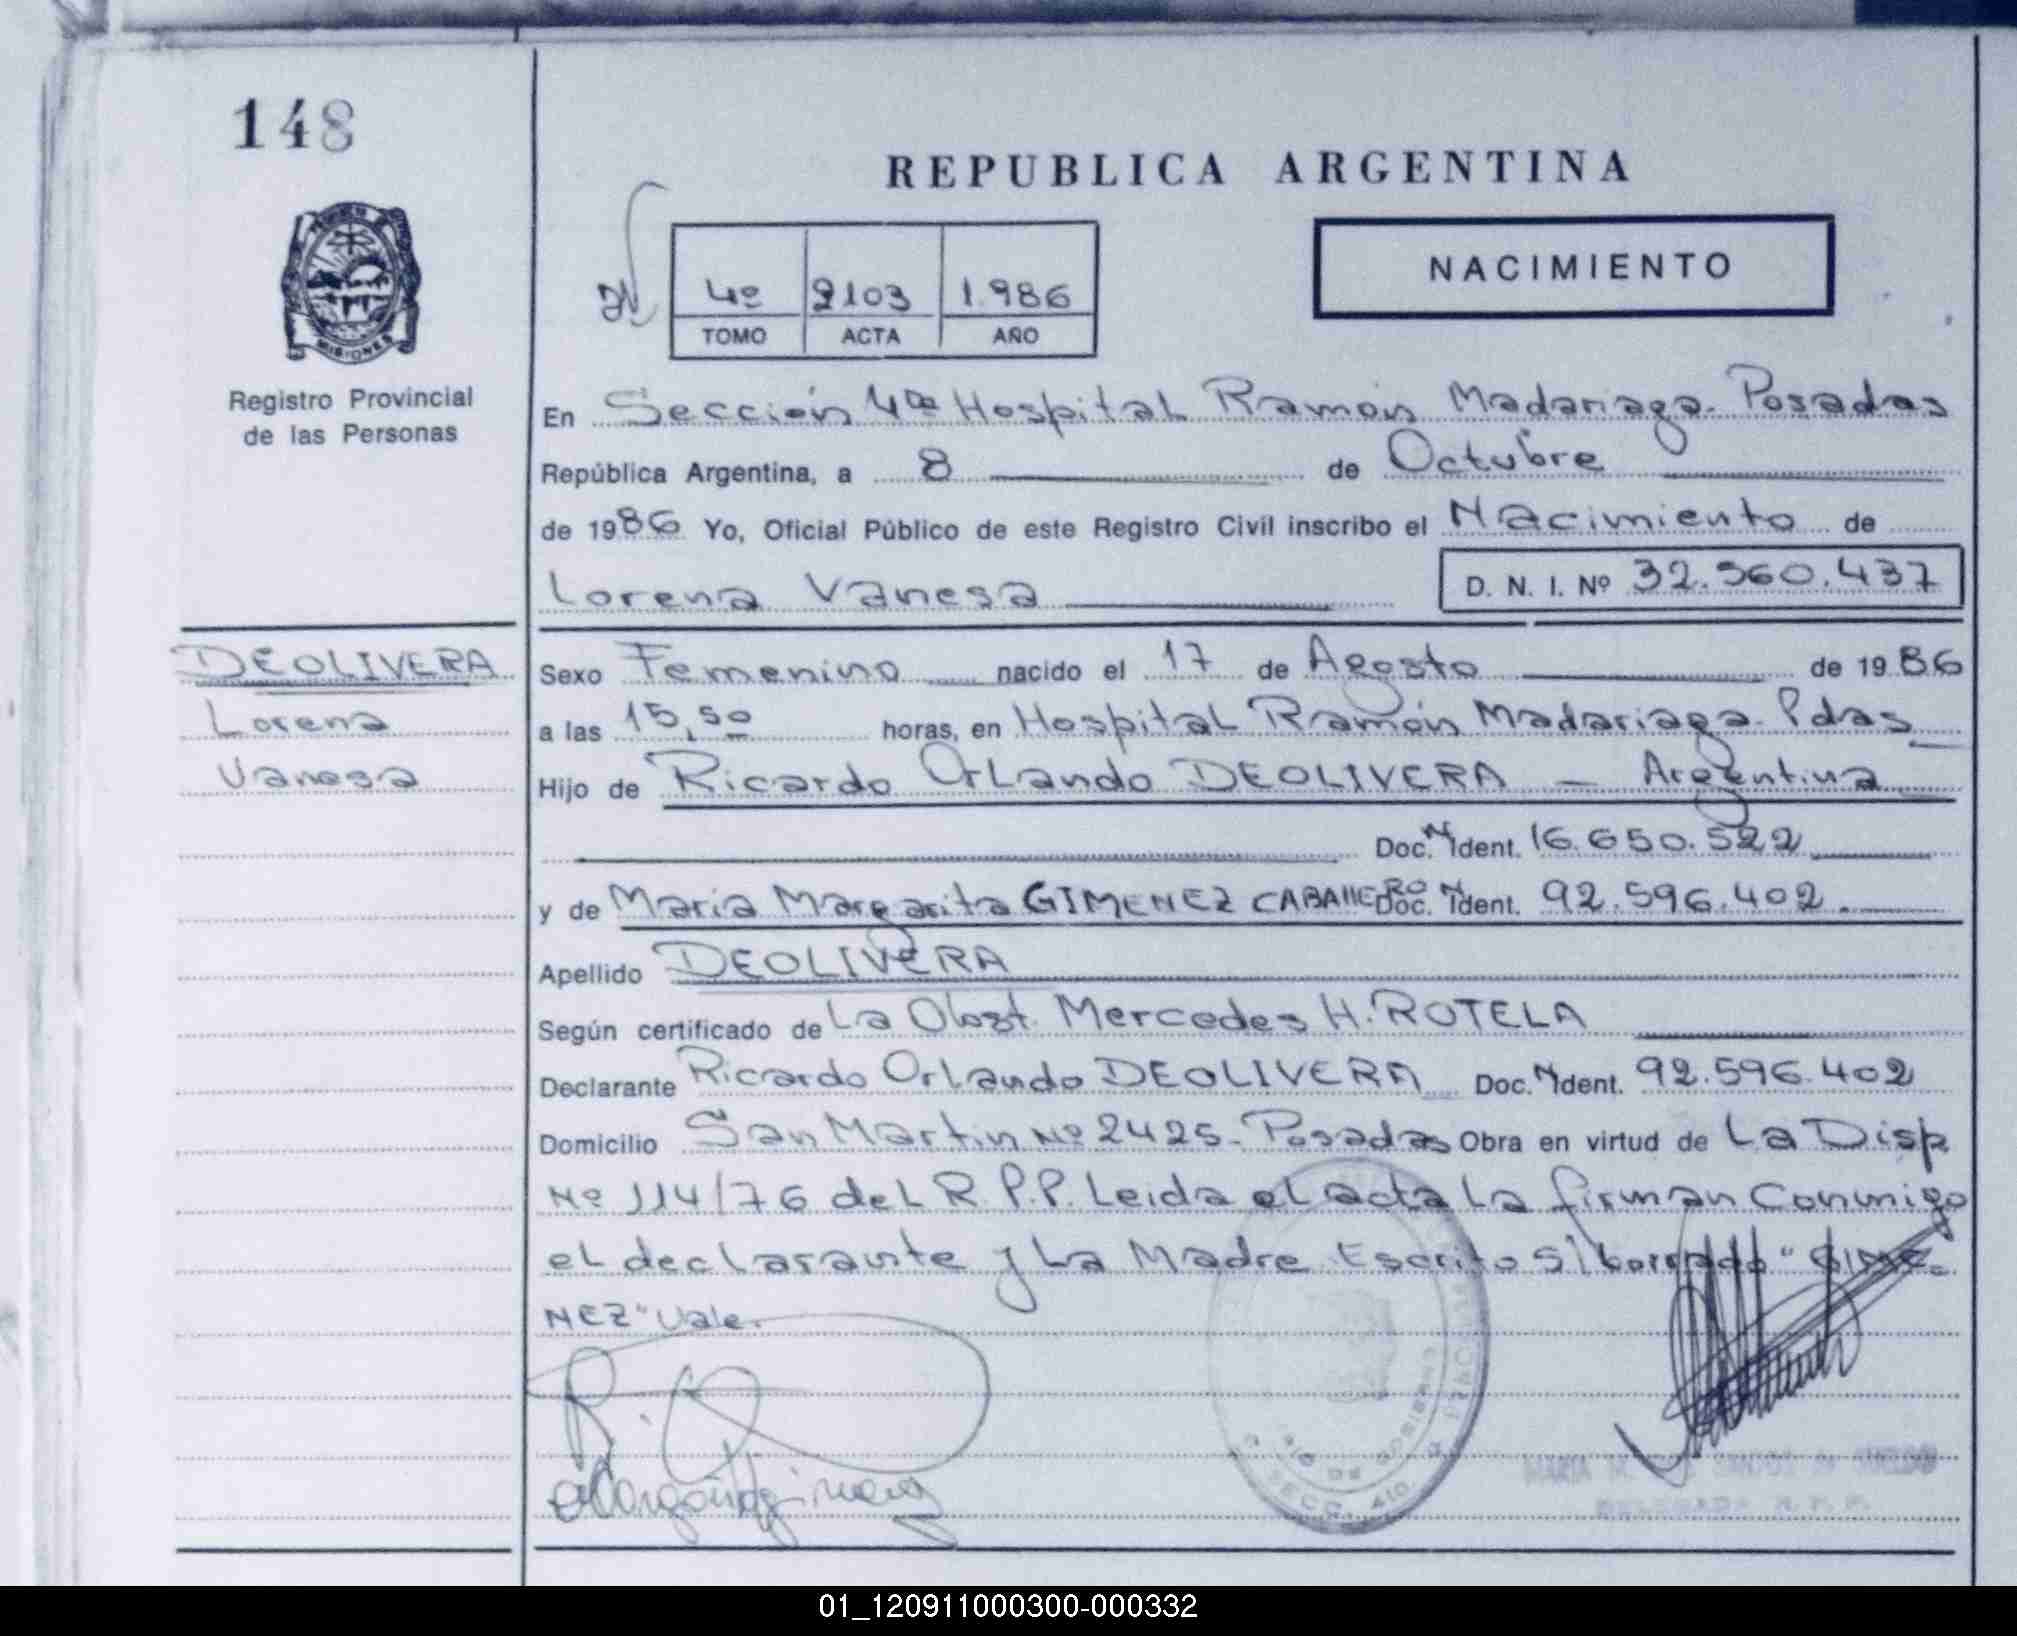 148
REPUBLICA ARGENTINA
NACIMIENTO
4º 2103 1.986
TOMO ACTA AÑO
MISIONES
Registro Provincial
de las Personas
En Sección 4ta Hospital Ramón Madariaga. Posadas
República Argentina, a 8 de Octubre
de 1986 Yo, Oficial Público de este Registro Civil inscribo el Nacimiento de
Lorena Vanesa D. N. I. Nº 32.560.437
DEOLIVERA
Lorena
Vanesa
Sexo Femenino nacido el 17 de Agosto de 1986
a las 15,50 horas, en Hospital Ramón Madariaga. Pdas
Hijo de Ricardo Orlando DEOLIVERA — Argentina
Doc. N Ident. 16.650.522
y de Maria Margarita GIMENEZ CABALLERO Doc. N Ident. 92.596.402.
Apellido DEOLIVERA
Según certificado de La Obst. Mercedes H. ROTELA
Declarante Ricardo Orlando DEOLIVERA Doc. N Ident. 92.596.402
Domicilio San Martin Nº 2425- Posadas Obra en virtud de La Disp
Nº 114/76 del R.P.P. Leida el acta La firman Conmigo
el declarante y La Madre. Escrito S/ borrado "GIME-
NEZ" Vale.
SECC. 4TO
DELEGADA R. P. P.
01_120911000300-000332